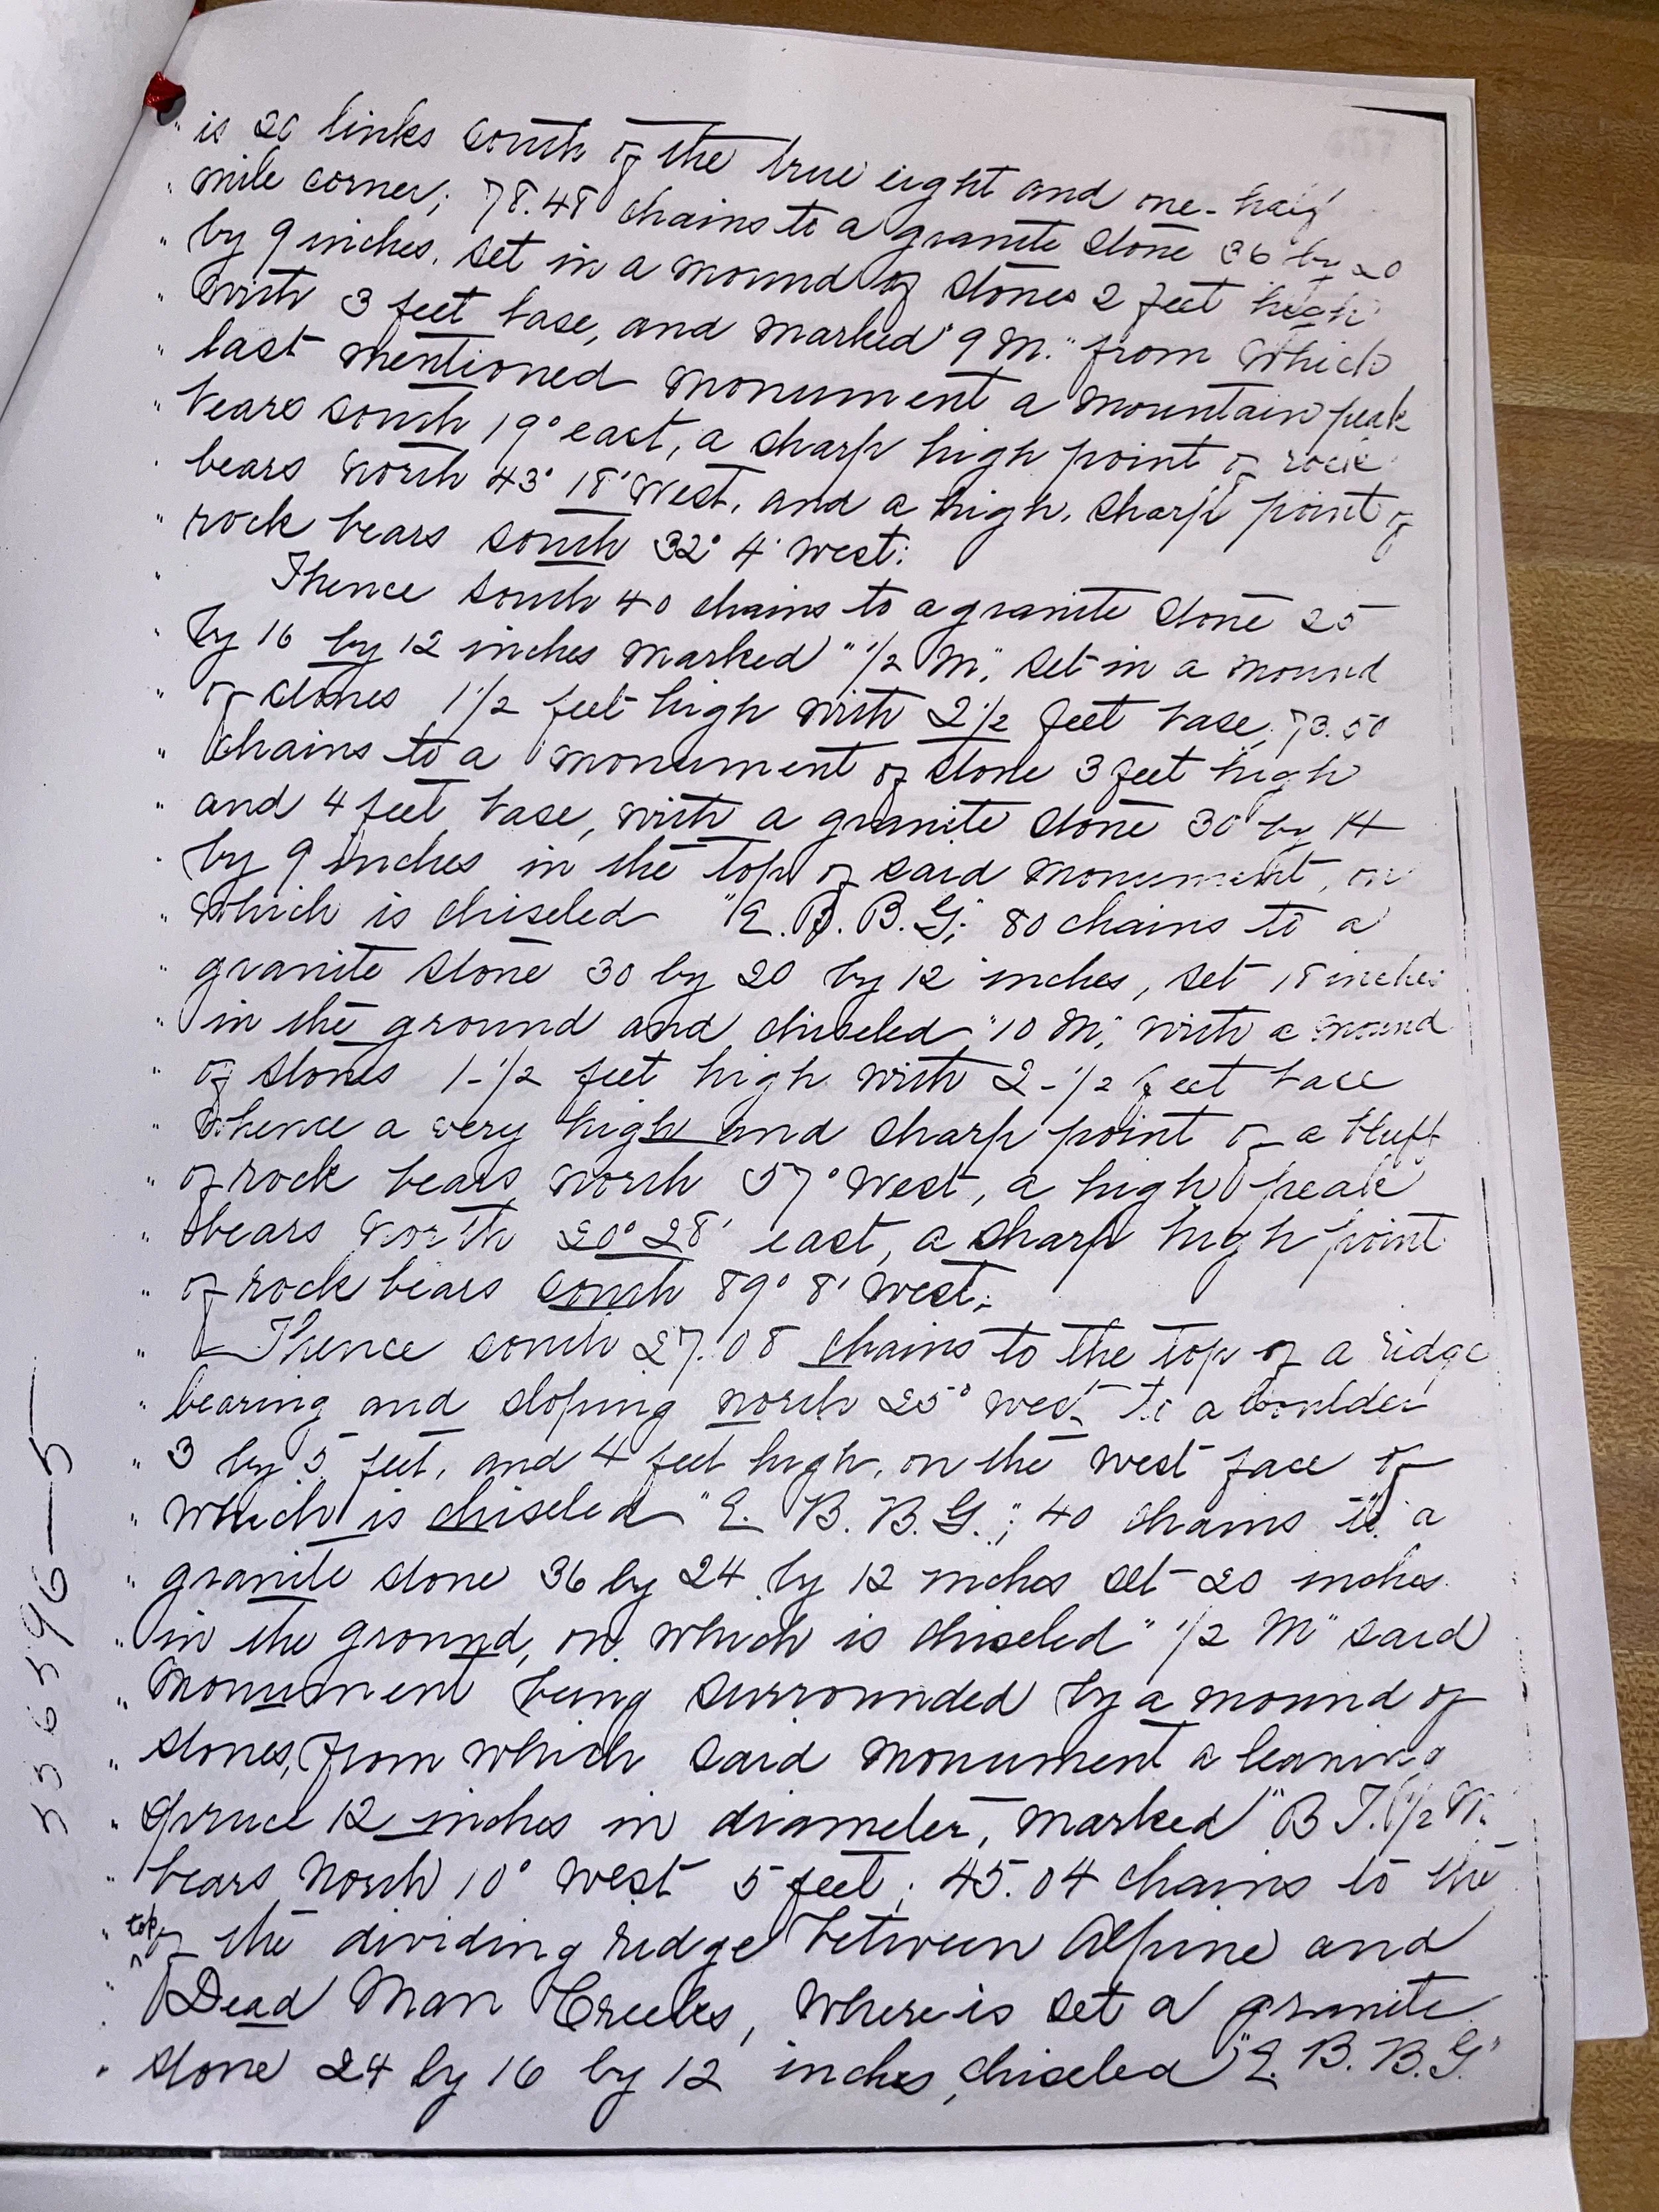 " is 20 links south of the true eight and one-half
" mile corner; 78.48 chains to a granite stone 36 by 20
" by 9 inches, set in a mound of stones 2 feet high
" with 3 feet base, and marked "9 M." from which
" last mentioned monument a mountain peak
" bears south 19° east, a sharp high point of rock
" bears north 43° 18' west, and a high, sharp point of
" rock bears south 32° 4' west:
" Thence south 40 chains to a granite stone 25
" by 16 by 12 inches marked "1/2 M", set in a mound
" of stones 1 1/2 feet high with 2 1/2 feet base, 73.50
" chains to a monument of stone 3 feet high
" and 4 feet base, with a granite stone 30 by 14
" by 9 inches in the top of said monument, on
" which is chiseled "E. B. B. G; 80 chains to a
" granite stone 30 by 20 by 12 inches, set 18 inches
" in the ground and chiseled "10 M," with a mound
" of stones 1-1/2 feet high with 2-1/2 feet base
" whence a very high and sharp point of a bluff
" of rock bears north 57° west, a high peak
" bears north 20° 28' east, a sharp high point
" of rock bears south 89° 8' west;
" Thence south 27.08 chains to the top of a ridge
" bearing and sloping north 25° west to a boulder
" 3 by 5 feet, and 4 feet high, on the west face of
" which is chiseled "E. B. B. G."; 40 chains to a
" granite stone 36 by 24 by 12 inches set 20 inches
" in the ground, on which is chiseled "1/2 M" said
" monument being surrounded by a mound of
" stones, from which said monument a leaning
" spruce 12 inches in diameter, marked "B T. 1/2 M.
" bears north 10° west 5 feet; 45.04 chains to the
" top of the dividing ridge between Alpine and
" Dead Man Creeks, where is set a granite
" stone 24 by 16 by 12 inches, chiseled "E. B. B. G."
536596-5